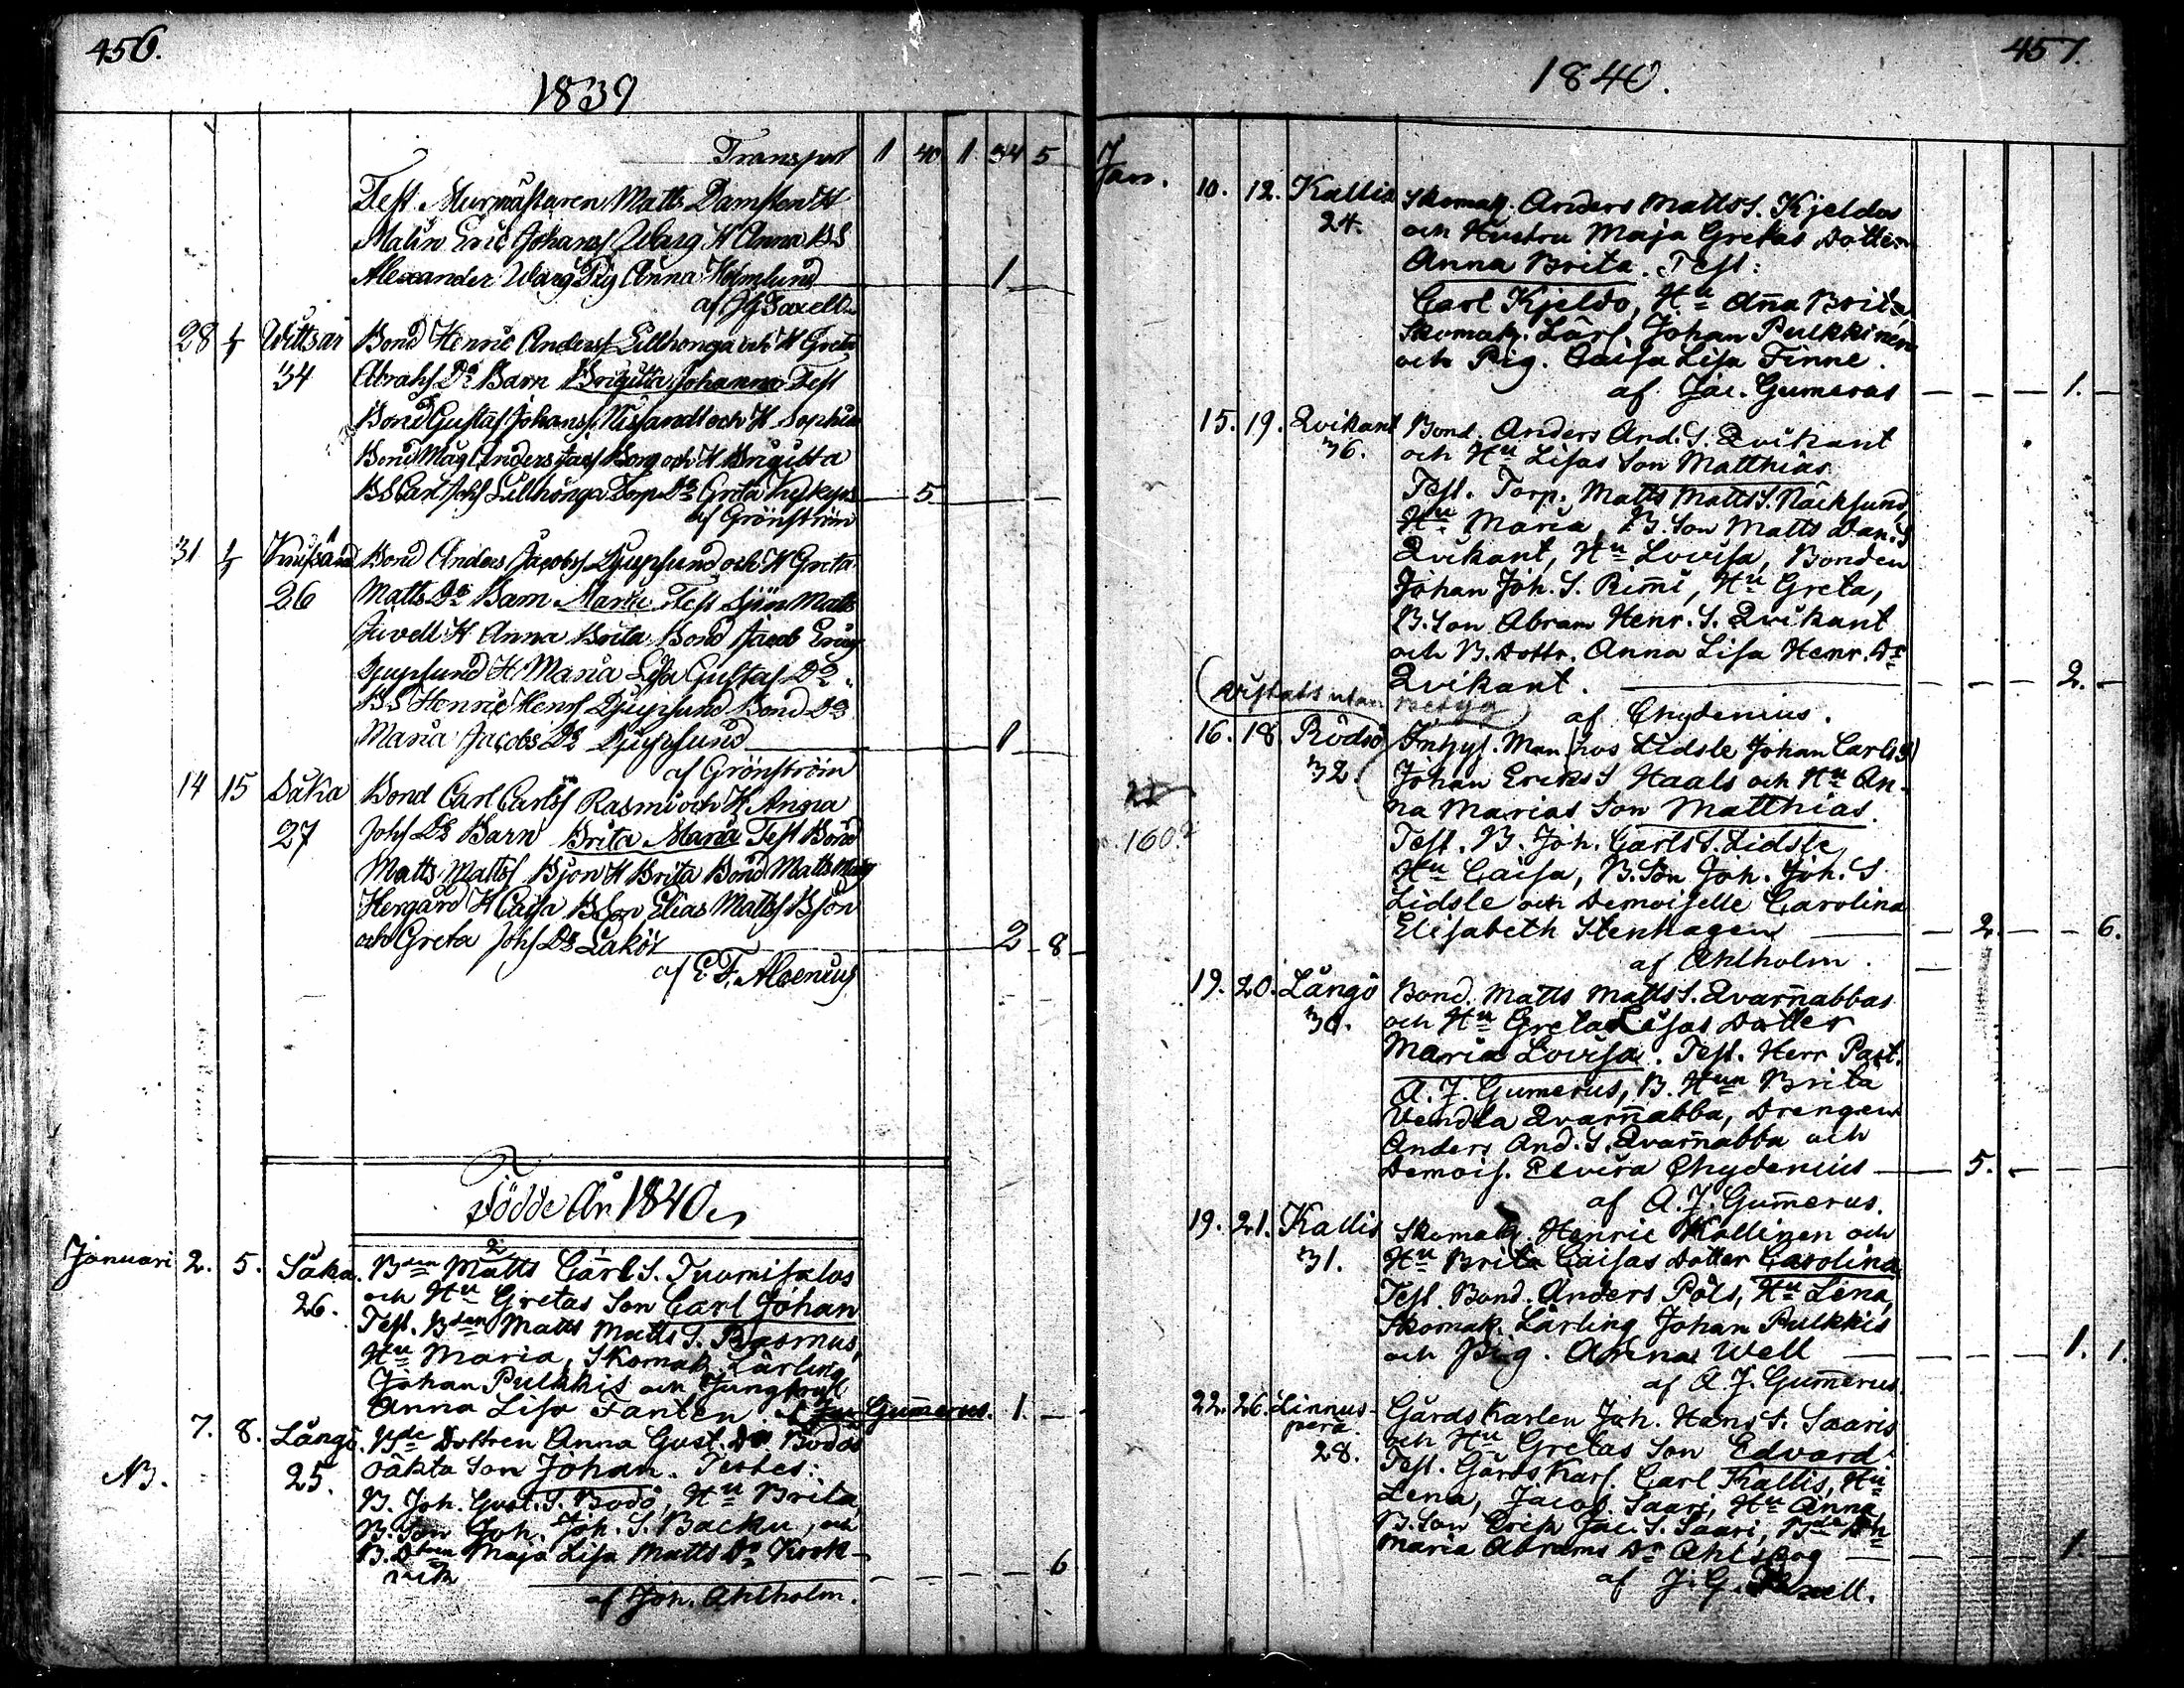 456.
1839
Transport 1 40 1 34 5
Test. Murmästaren Matts Damsten H
Malin Eric Johans Warg H Anna BS
Alexander Warg Pig Anna Holmlund 1
af JG Saxell
28 1/1 Wittsar Bond Henric Anderss Lillhonga och H Greta
34 Abrahs Dr Barn Brigitta Johanna Test
Bond Gustaf Johanss och H Sophia
Bond Mag Anders Borg och H Brigitta
BS Carl Johs Lillhonga Torp Dr Greta 5
af Grönström
31 1/1 Bond Anders Jacobss Djupsund och H Greta
26 Matts Dr Barn Maria Test Sjön Matts
Juvell H Anna Brita Bond Jacob
Djupsund H Maria Lisa Gustaf Dr
BS Henric Henrs Djupsund Bond Dr
Maria Jacobs Dr Djupsund 1
af Grönström
14 15 Såka Bond Carl Carlss Rasmi och H Anna
27 Johs Dr Barn Brita Maria Test Bond
Matts Mattss Bjon H Brita Bond Matts
Hergård H Caisa BSon Elias Mattss Bjon
och Greta Johs Dr Lakör 2 8
af E. F. Aloenius
Födde År 1840
Januari 2. 5. Såka. Bden Matts Carl S. Tuomisalos
26. och Hu Gretas Son Carl Johan
Test. Bden Matts Matts S. Rasmus,
Hu Maria, Skomak. Lärling
Johan Pulkkis och Jungfrul
Anna Lisa Fanten af Jac Gumerus. 1.
7. 8. Långö. Bde Dottren Anna Gust. Dr Bodös
NB. 25. oäkta Son Johan. Testes:
B. Joh. Gust. S. Bodö, Hu Brita,
B. Son Joh. Joh. S. Backu, och
B. Dtren Maja Lisa Matts Dr
6
af Joh. Ahlholm.
457.
1840.
Jan. 10. 12. Kallis Skomak. Anders Matts S. Kjeldos
24. och Hustru Maja Gretas Dotter
Anna Brita. Test:
Carl Kjeldo, Hu Anna Brita,
Skomak. Lärl. Johan Pulkkinen
och Pig. Caisa Lisa Finne.
af Jac. Gumerus 1.
15. 19. Qvikant Bond. Anders And. S. Qvikant
36. och Hu Lisas Son Matthias
Test. Torp. Matts Matts S. Näcksund,
Hu Maria, B. Son Matts Dan. S
Qvikant, Hu Lovisa, Bonden
Johan Joh. S. Rimi, Hu Greta,
B. Son Abram Henr. S. Qvikant
och B. Dottr. Anna Lisa Henr. Dr
Qvikant. 2.
(vistats utan betyg) af Chydenius.
16. 18. Rödsö Inhys. Man (hos Lidsle Johan Carls S)
32. Johan Eriks S Haals och Hu An-
na Marias Son Matthias.
160? Test. B. Joh. Carls S. Lidsle,
Hu Caisa, B. Son Joh. Joh. S.
Lidsle och Demoiselle Carolina
Elisabeth Stenhagen 2. 6.
af Ahlholm.
19. 20. Långö Bond. Matts Matts S. Qvarnabbas
30. och Hu Greta Lisas Dotter
Maria Lovisa. Test. Herr Past.
A. J. Gumerus, B. Hun Brita
Vendla Qvarnabba, Drengen
Anders And. S. Qvarnabba och
Demois. Elvira Chydenius 5.
af A. J. Gumerus.
19. 21. Kallis Skomak. Henric Kallinen och
31. Hu Brita Caisas Dotter Carolina
Test. Bond. Anders Påls, Hu Lena,
Skomak. Lärling Johan Pulkkis
och Pig. Anna Well 1. 1.
af A. J. Gumerus.
22. 26. Linnus- Gårds Karlen Joh. Hans S. Saaris
perä. och Hu Gretas Son Edvard.
28. Test. Gårds Karl. Carl Kallis, Hu
Lena, Jacob Saari, Hu Anna,
B. Son Erik Jac. S. Saari,
Maria Abrams Dr Ahlskog 1.
af J. G.